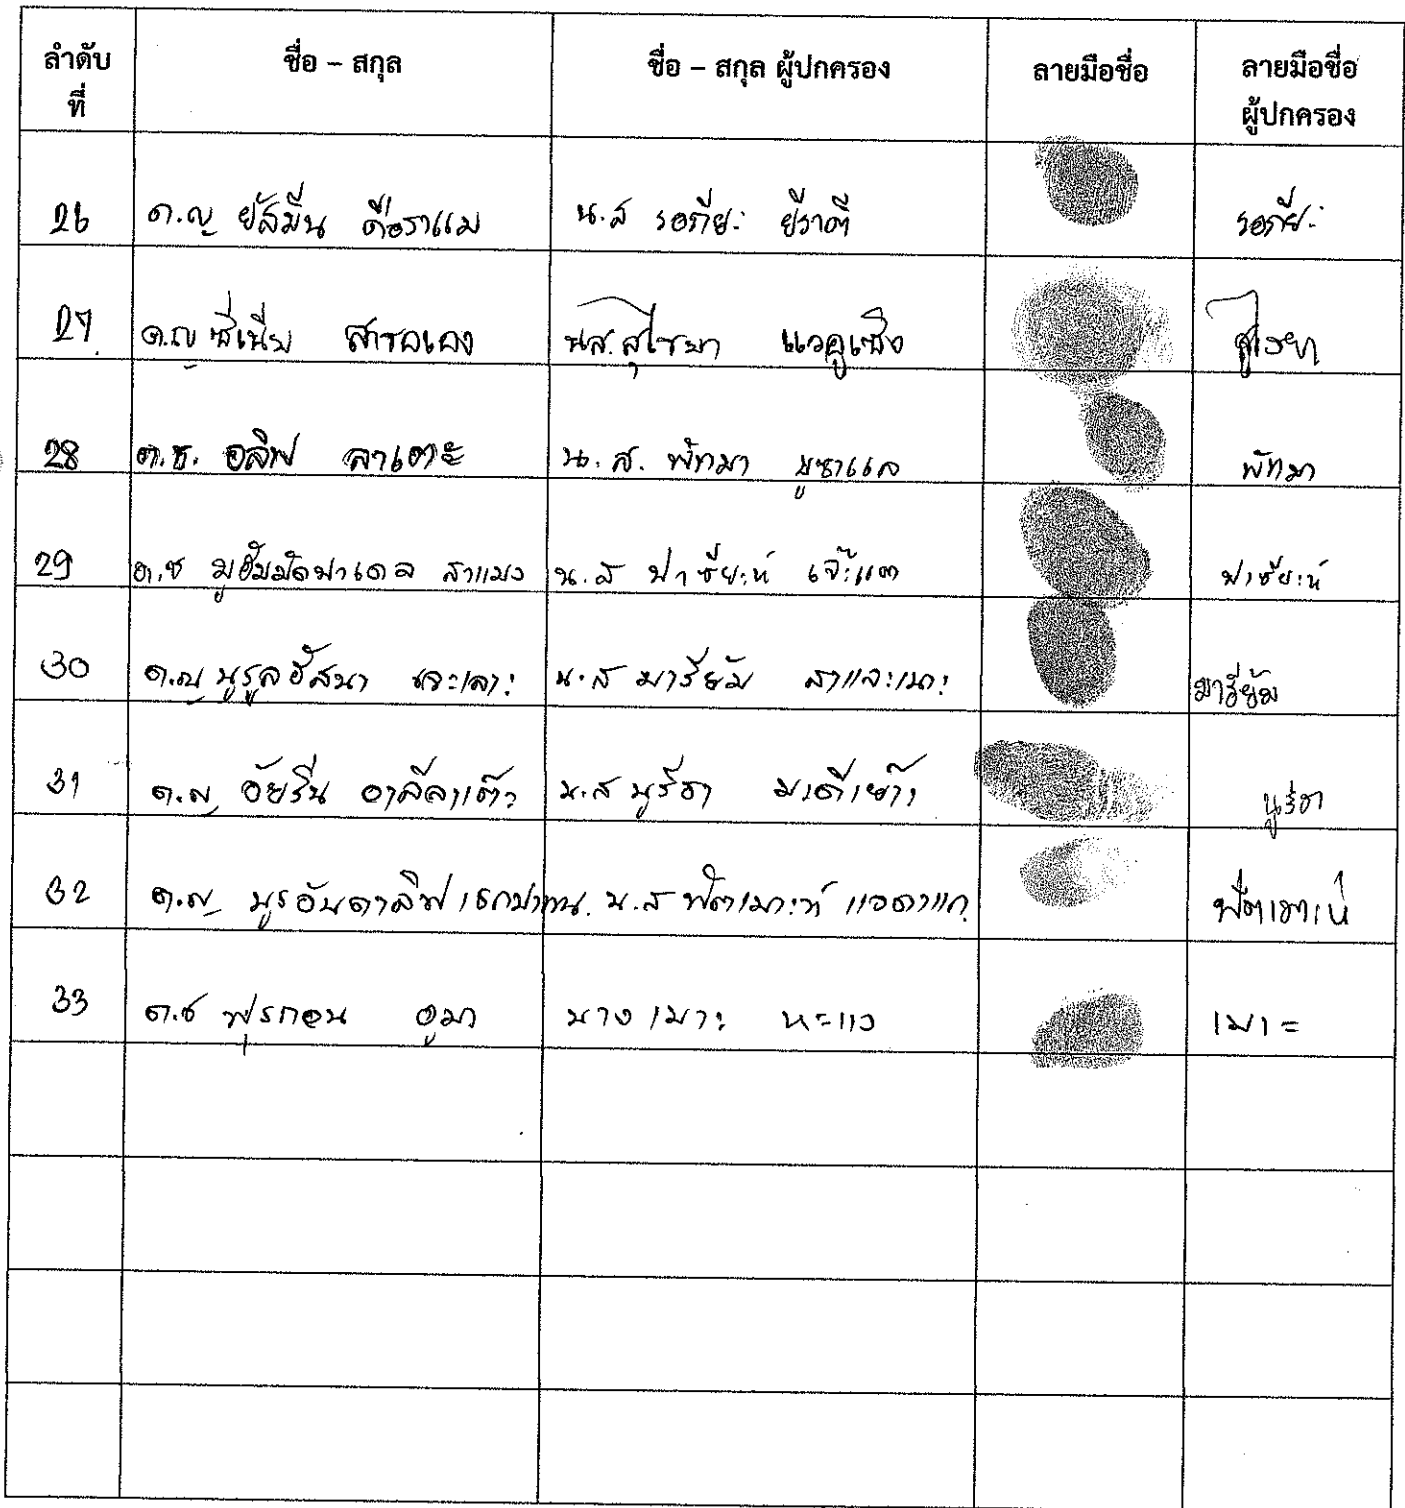 ลำดับที่ ชื่อ – สกุล ชื่อ – สกุล ผู้ปกครอง ลายมือชื่อ ลายมือชื่อผู้ปกครอง
26 ด.ญ ยัสมีน ดือราแม น.ส รอกีย๊ะ ยีราตี รอกีย๊ะ
27 ด.ญ น.ส.
28 ด.ช. อลิฟ ลาเตะ น.ส. พัทมา มูซาแล พัทมา
29 ด.ช มูฮัมมัดฟาเดล สาแมง น.ส ฟาซียะห์ เจ๊ะแต ฟาซียะห์
30 ด.ญ นูรูลฮัสนา เจะเลาะ น.ส มารียัม สาและเนาะ มารียัม
31 ด.ญ อัยรีน อาลีลาเต๊ะ น.ส นูรีดา นูรีดา
32 ด.ญ นูรอันดาลิฟ น.ส ฟัตเมาะห์ แวดาแก
33 ด.ช ฟุรกอน อูมา นาง เมาะ หะแว เมาะ